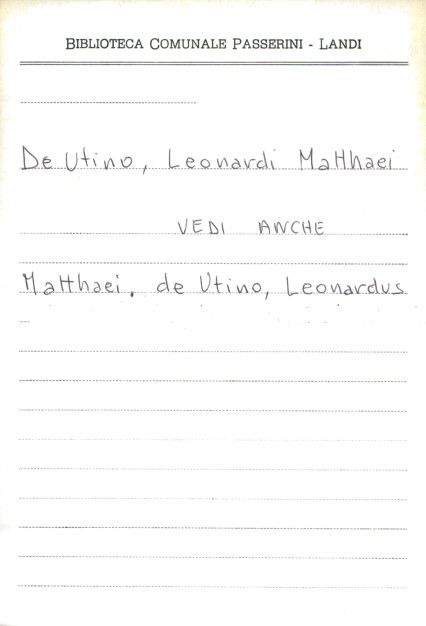 BIBLIOTECA COMUNALE PASSERINI - LANDI
De Utino, Leonardi Matthaei
VEDI ANCHE
Matthaei, de Utino, Leonardus